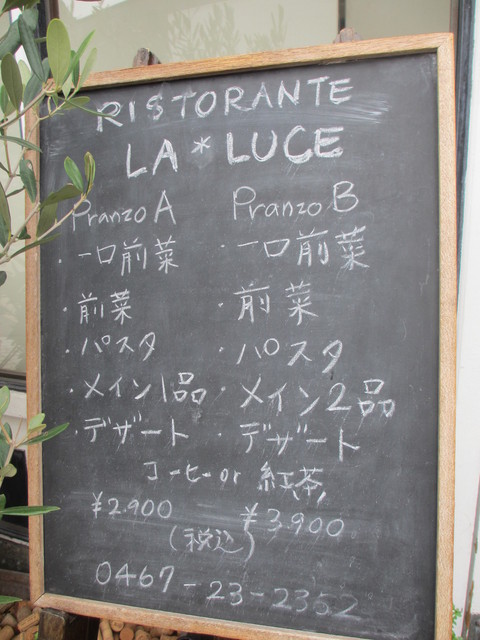 RISTORANTE
LA * LUCE
Pranzo A Pranzo B
・一口前菜 ・一口前菜
・前菜 ・前菜
・パスタ ・パスタ
・メイン1品 ・メイン2品
・デザート ・デザート
コーヒー or 紅茶
¥2.900 ¥3.900
(税込)
0467-23-2352